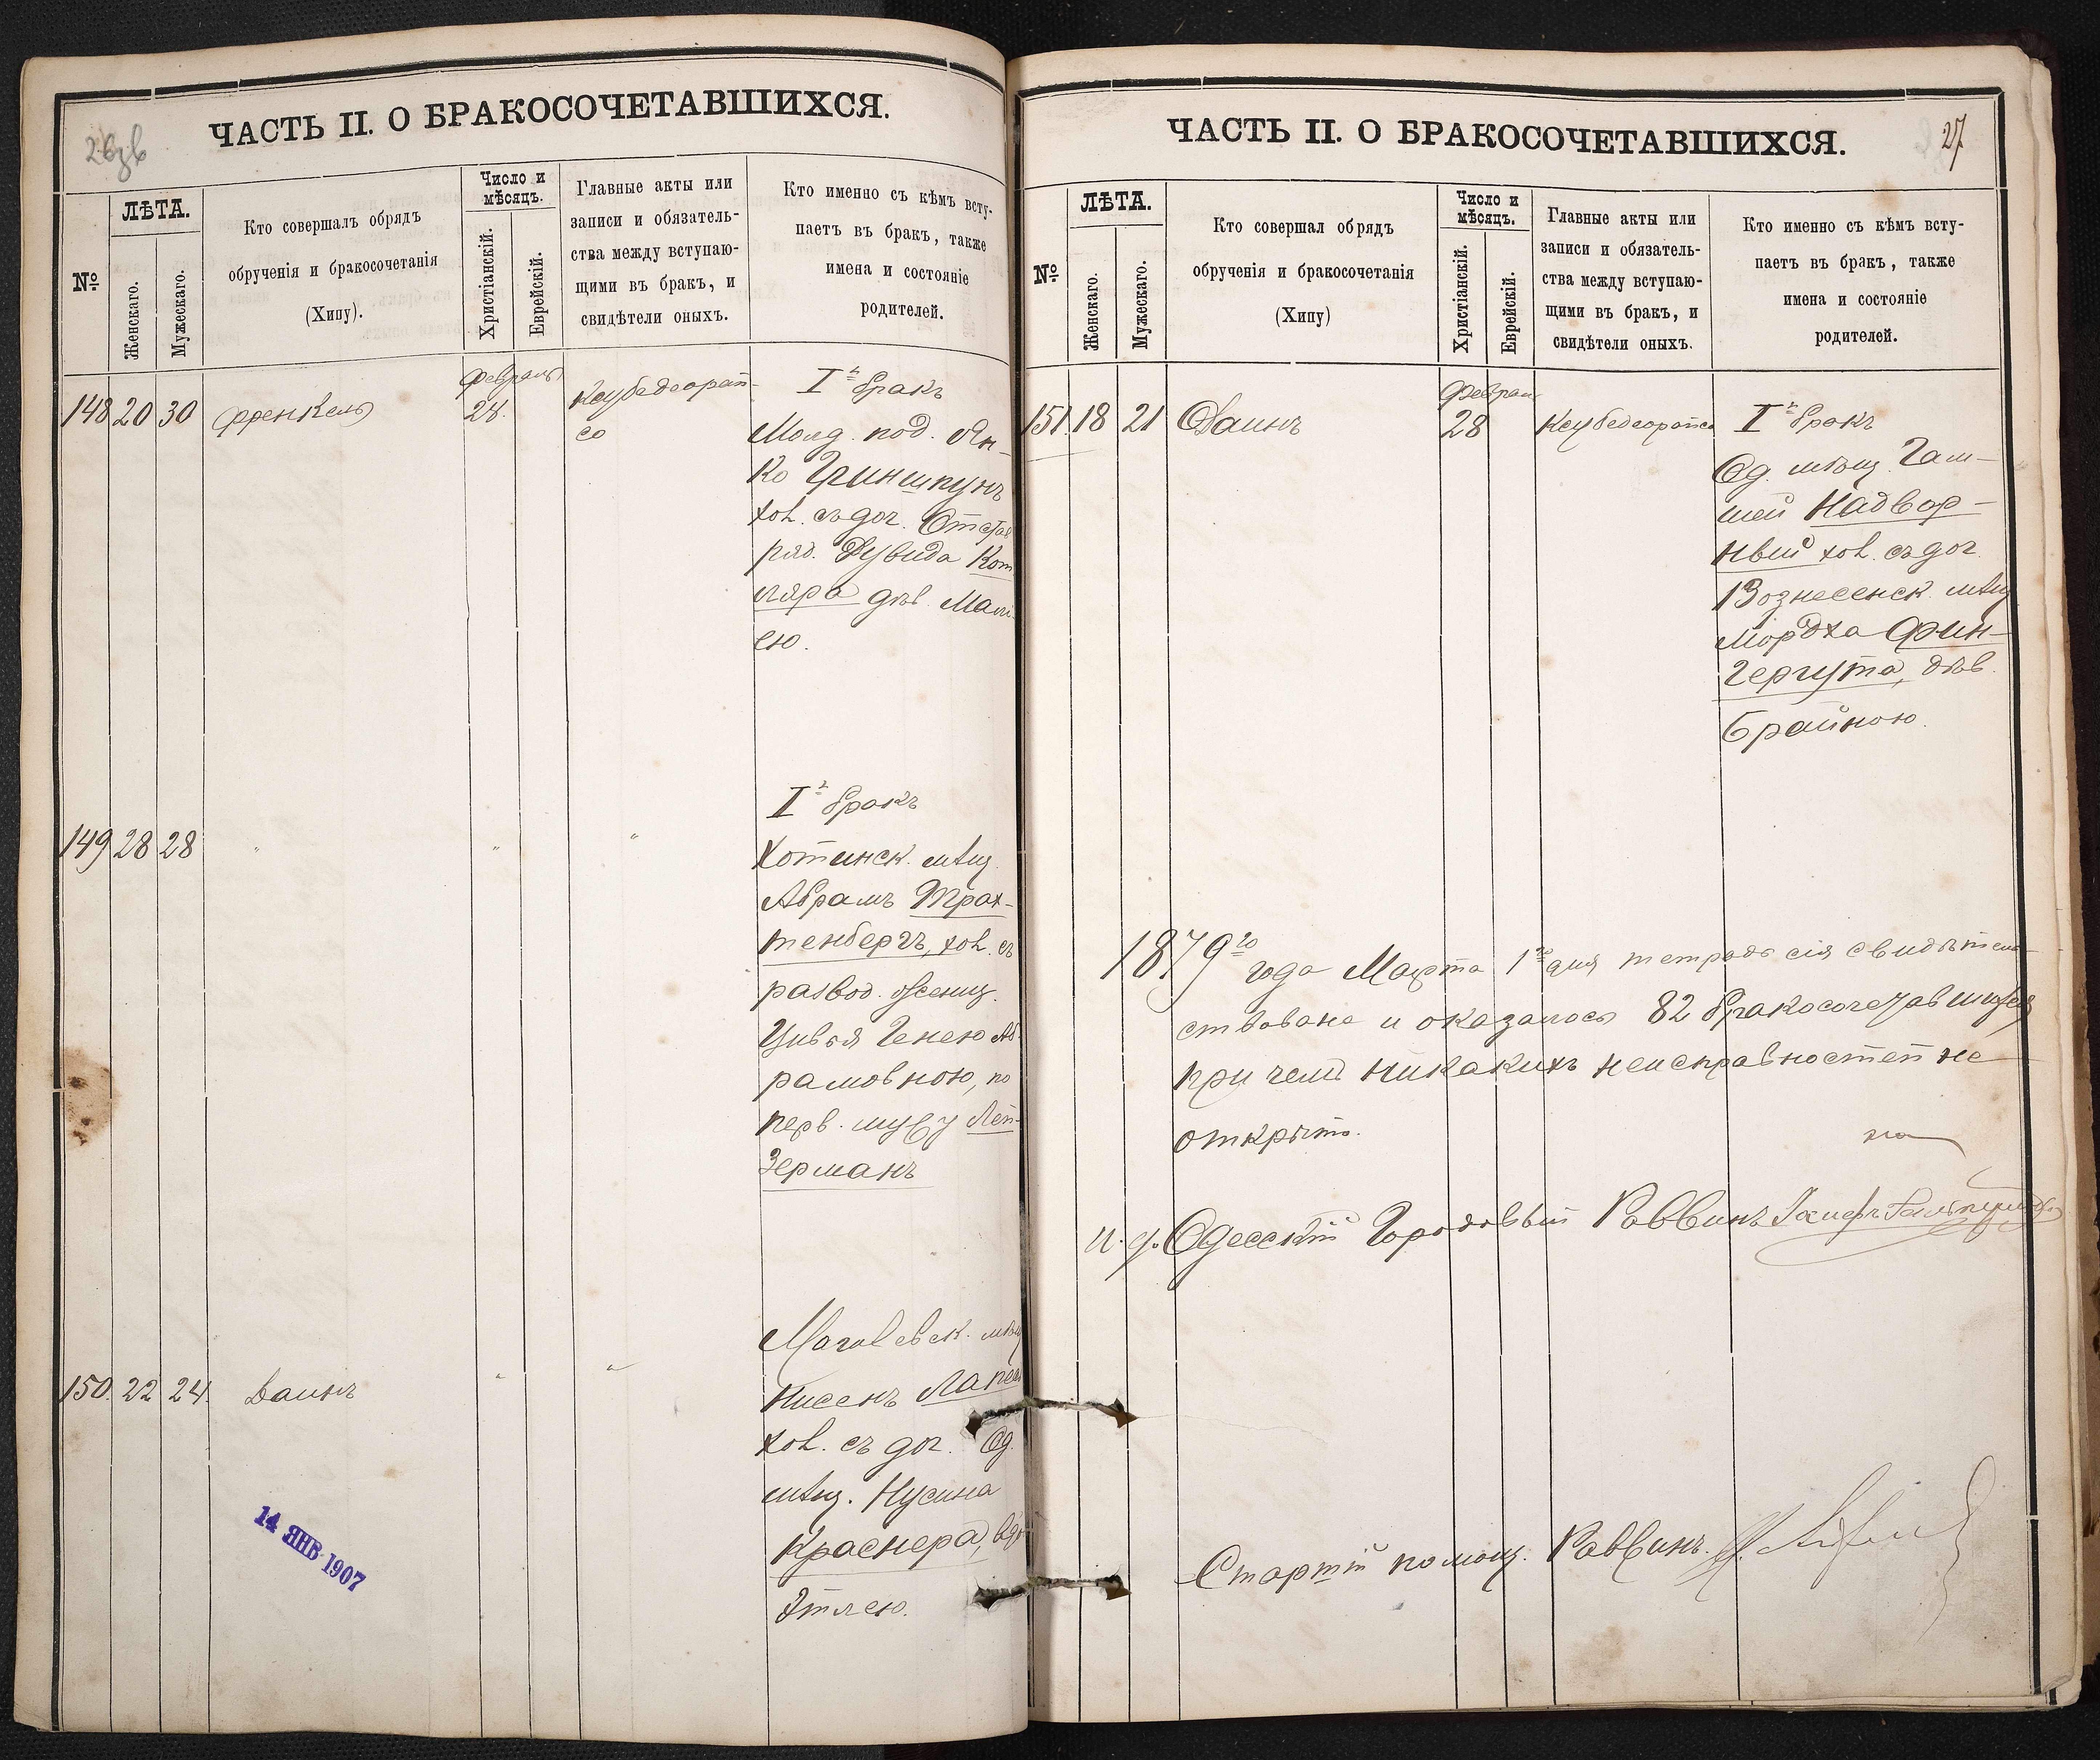 26 об
ЧАСТЬ II. О БРАКОСОЧЕТАВШИХСЯ.
№
ЛѢТА.
Женскаго.
Мужескаго.
Кто совершалъ обрядъ
обрученія и бракосочетанія
(Хипу).
Число и
мѣсяцъ.
Христіанскій.
Еврейскій.
Главные акты или
записи и обязатель-
ства между вступаю-
щими въ бракъ, и
свидѣтели оныхъ.
Кто именно съ кѣмъ всту-
паетъ въ бракъ, также
имена и состояніе
родителей.
148 20 30 Френкель
Февраль
28.
Кеубедеорай-
со
Iй бракъ
Молд. под. Ян-
ко Гриншпунъ
хол. съ доч. Отстав
ряд. Дувида Кот
ляра дѣв. Мали
ею.
149 28 28 " " "
Iй бракъ
Хотинск. мѣщ.
Абрамъ Трах-
тенбергъ, хол. съ
развод. женщ.
Цивоя Генею Аб
рамовною, по
перв. мужу Лей-
Зерманъ
150. 22 24. Даинъ " "
Могилевск. мѣщ
Нисенъ
хол. съ доч. Од.
мѣщ. Нусина
Краснера,
Этлею.
14 ЯНВ 1907
27
ЧАСТЬ II. О БРАКОСОЧЕТАВШИХСЯ.
№
ЛѢТА.
Женскаго.
Мужескаго.
Кто совершал обрядъ
обрученія и бракосочетанія
(Хипу)
Число и
мѣсяцъ.
Христіанскій.
Еврейскій.
Главные акты или
записи и обязатель-
ства между вступаю-
щими въ бракъ, и
свидѣтели оныхъ.
Кто именно съ кѣмъ всту-
паетъ въ бракъ, также
имена и состояніе
родителей.
151. 18 21 Даинъ
Феврал
28
Кеубедеорайсо
Iй бракъ
Од. мѣщ. Гам-
шей Надвор-
ный хол. съ доч.
Вознесенск. мѣщ
Мордха Фин-
гергута, дѣв.
Брайною.
1879го года Марта 1го дня тетрадь сія свидѣтель-
ствована и оказалось 82 бракосочетавшихся
при чемъ никакихъ неисправностей не
открыто.
И. д. Одесскій Городовый Раввинъ
Старшій помощ. Раввинъ